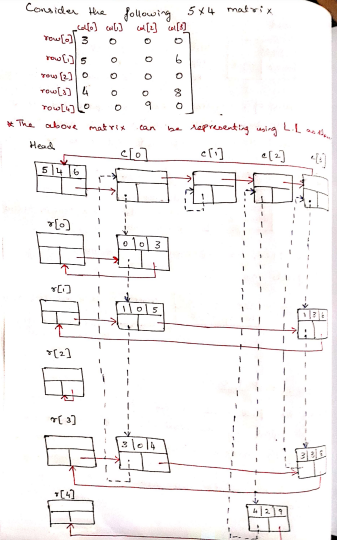 Consider the following 5x4 matrix
col[0] col[1] col[2] col[3]
row[0] 3 0 0 0
row[1] 5 0 0 6
row[2] 0 0 0 0
row[3] 4 0 0 8
row[4] 0 0 9 0
* The above matrix can be representing using L.L as
Head c[0] c[1] c[2] c[3]
5 4 6
r[0]
0 0 3
r[1]
1 0 5 1 3 6
r[2]
r[3]
3 0 4 3 3
r[4]
4 2 9